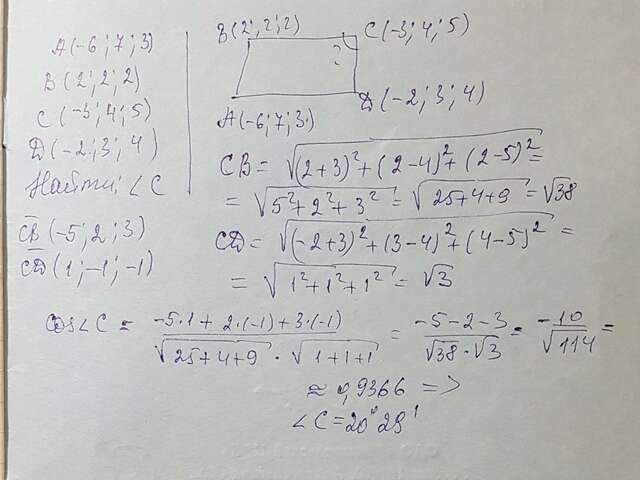 A(-6; 7; 3)
B(2; 2; 2)
C(-3; 4; 5)
D(-2; 3; 4)
Найти: ∠C
CB(-5; 2; 3)
CD(1; -1; -1)
B(2; 2; 2)
C(-3; 4; 5)
?
A(-6; 7; 3)
D(-2; 3; 4)
CB = √(2+3)²+(2-4)²+(2-5)² =
= √5²+2²+3² = √25+4+9 = √38
CD = √(-2+3)²+(3-4)²+(4-5)² =
= √1²+1²+1² = √3
cos∠C = -5·1+2·(-1)+3·(-1) / √25+4+9 · √1+1+1 = -5-2-3 / √38·√3 = -10 / √114 =
≈ 0,9366 =>
∠C = 20°29'